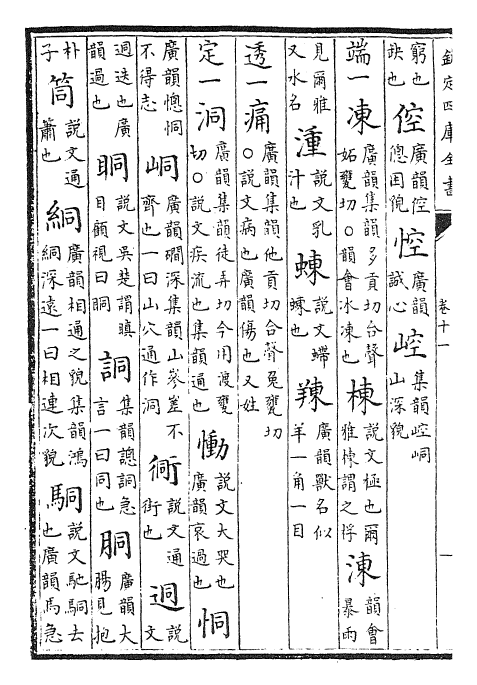 欽定四庫全書 卷十一
窮也缺也 倥 廣韻倥傯困貌 悾 廣韻誠心 崆 集韻崆峒山深貌
端一 凍 廣韻集韻多貢切合聲妬甕切○韻會冰凍也 棟 說文極也爾雅棟謂之桴 涷 韻會暴雨
見爾雅又水名 湩 說文乳汁也 蝀 說文螮蝀也 䍶 廣韻獸名似羊一角一目
透一 痛 廣韻集韻他貢切合聲兔甕切○說文病也廣韻傷也又姓
定一 洞 廣韻集韻徒弄切今用渡甕切○說文疾流也集韻通也 慟 說文大哭也廣韻哀過也 恫
廣韻憁恫不得志 峒 廣韻磵深集韻山參差不齊也一曰山穴通作洞 衕 說文通街也 迵 說文
迵迭也廣韻過也 眮 說文吳楚謂瞋目顧視曰眮 詷 集韻謥詷急言一曰同也 胴 廣韻大腸見抱
朴子 筒 說文通簫也 絧 廣韻相通之貌集韻鴻絧深遠一曰相連次貌 駧 說文馳駧去也廣韻馬急